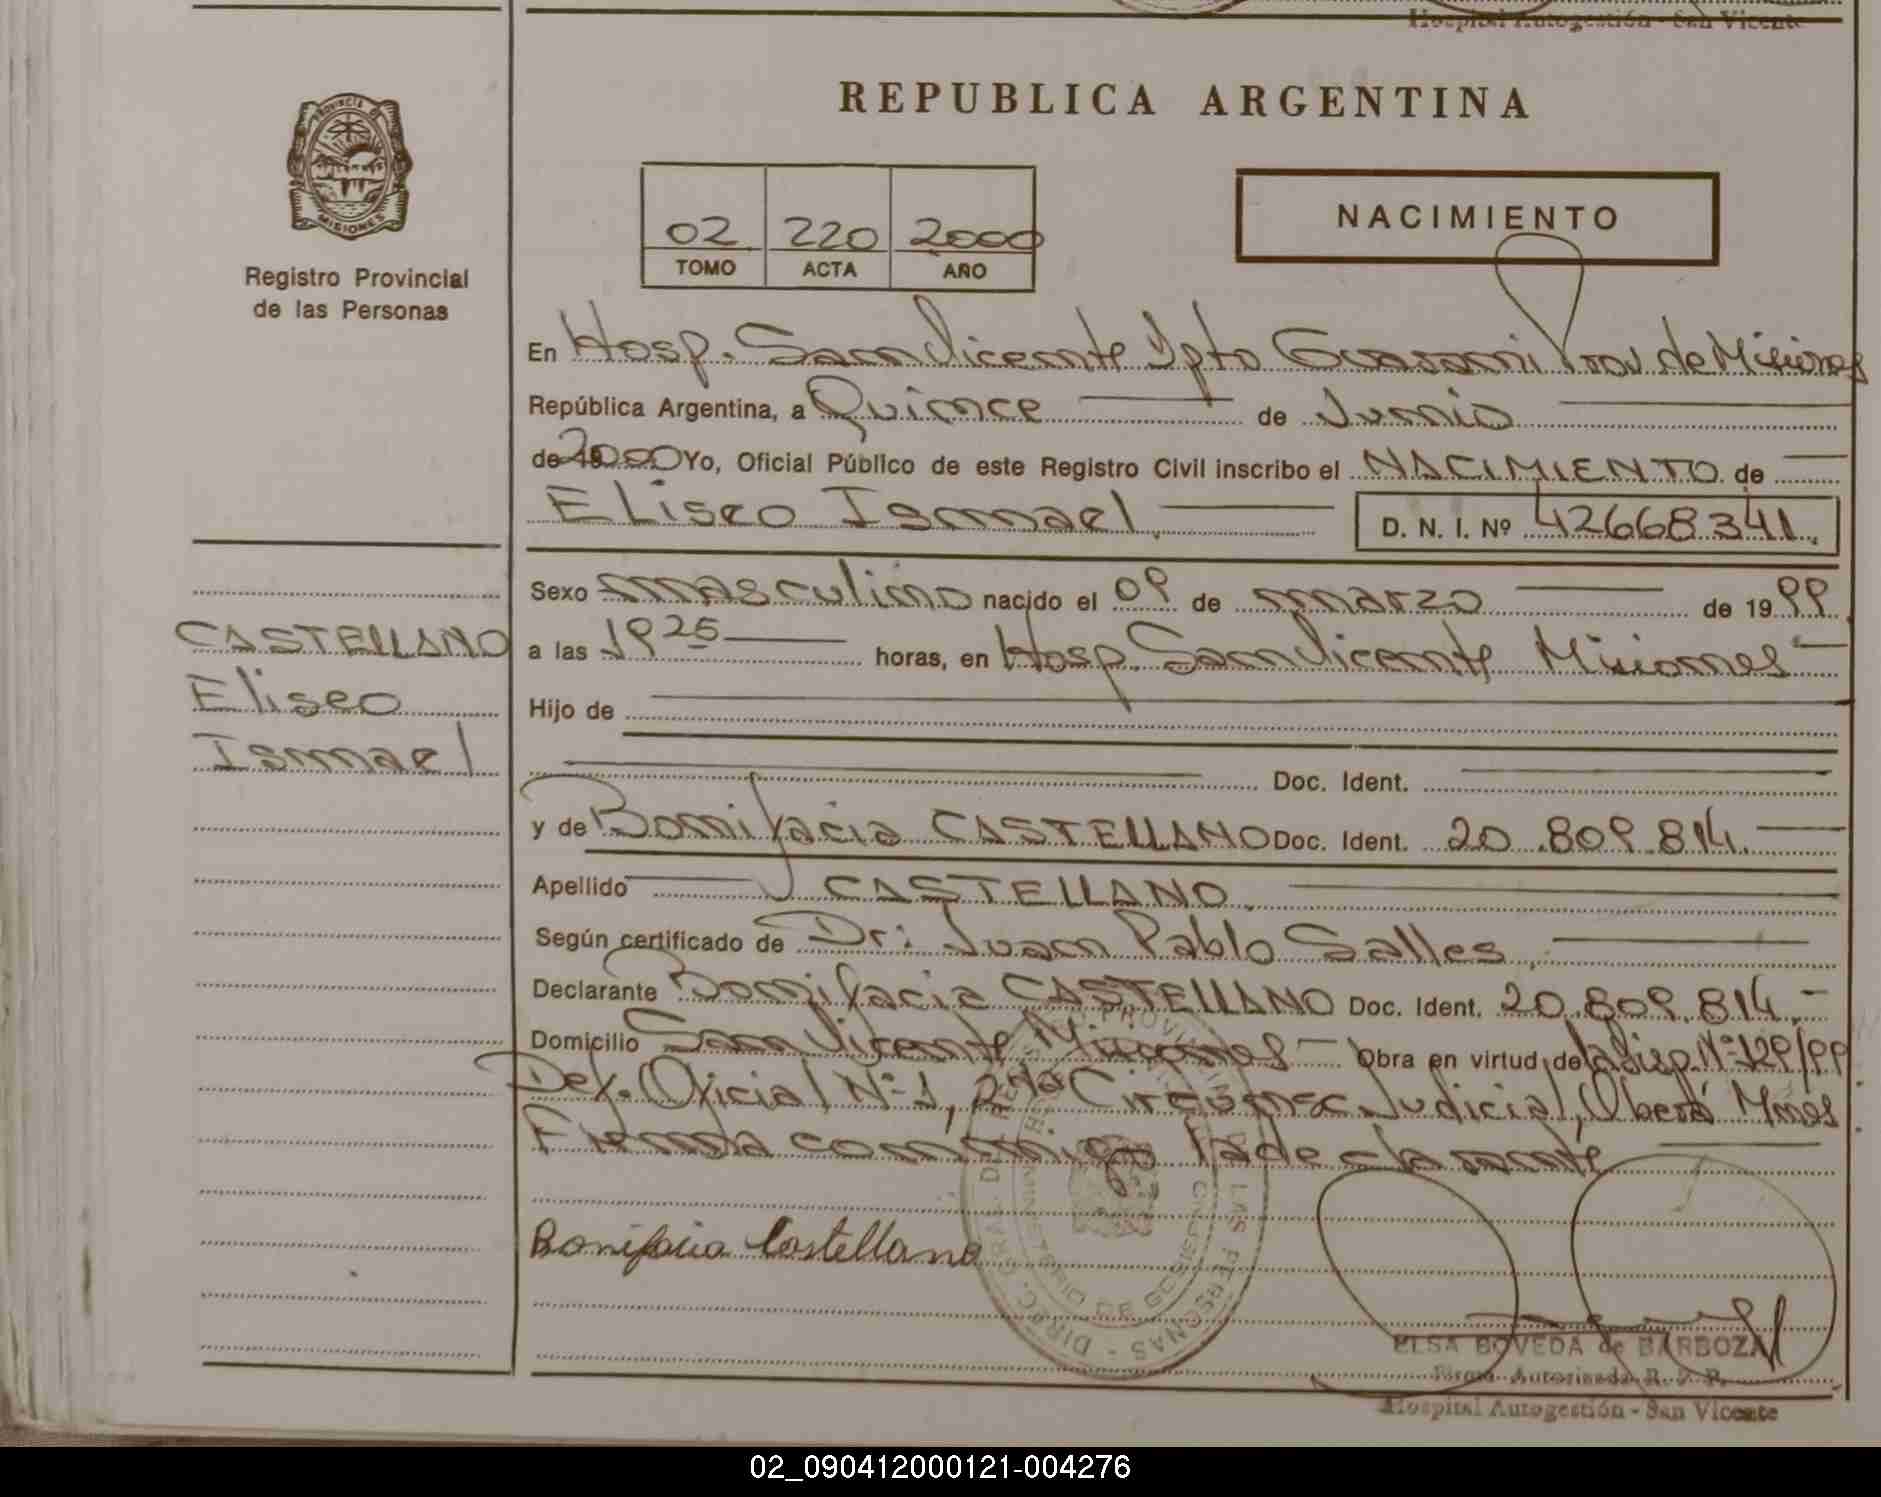 Hospital Autogestión - San Vicente
REPUBLICA ARGENTINA
PROVINCIA DE
MISIONES
Registro Provincial
de las Personas
02 220 2000
TOMO ACTA AÑO
NACIMIENTO
En Hosp. San Vicente Dpto Guarani Prov de Misiones
República Argentina, a Quince de Junio
de 2000 Yo, Oficial Público de este Registro Civil inscribo el NACIMIENTO de
Eliseo Ismael D. N. I. Nº 42668341
Sexo masculino nacido el 09 de marzo de 1999
a las 19 25 horas, en Hosp. San Vicente Misiones
CASTELLANO
Eliseo
Ismael
Hijo de
Doc. Ident.
y de Bonifacia CASTELLANO Doc. Ident. 20.809.814.
Apellido CASTELLANO
Según certificado de Dr: Juan Pablo Salles
Declarante Bonifacia CASTELLANO Doc. Ident. 20.809.814.
Domicilio San Vicente Misiones Obra en virtud de la Disp. Nº 129/99
Def. Oficial Nº 1, 2da Circunsc. Judicial, Oberá Mnes
Firma conmigo la declarante
Bonifacia Castellano
ELSA BOVEDA de BARBOZA
Firma Autorizada R. P. P.
Hospital Autogestión - San Vicente
02_090412000121-004276